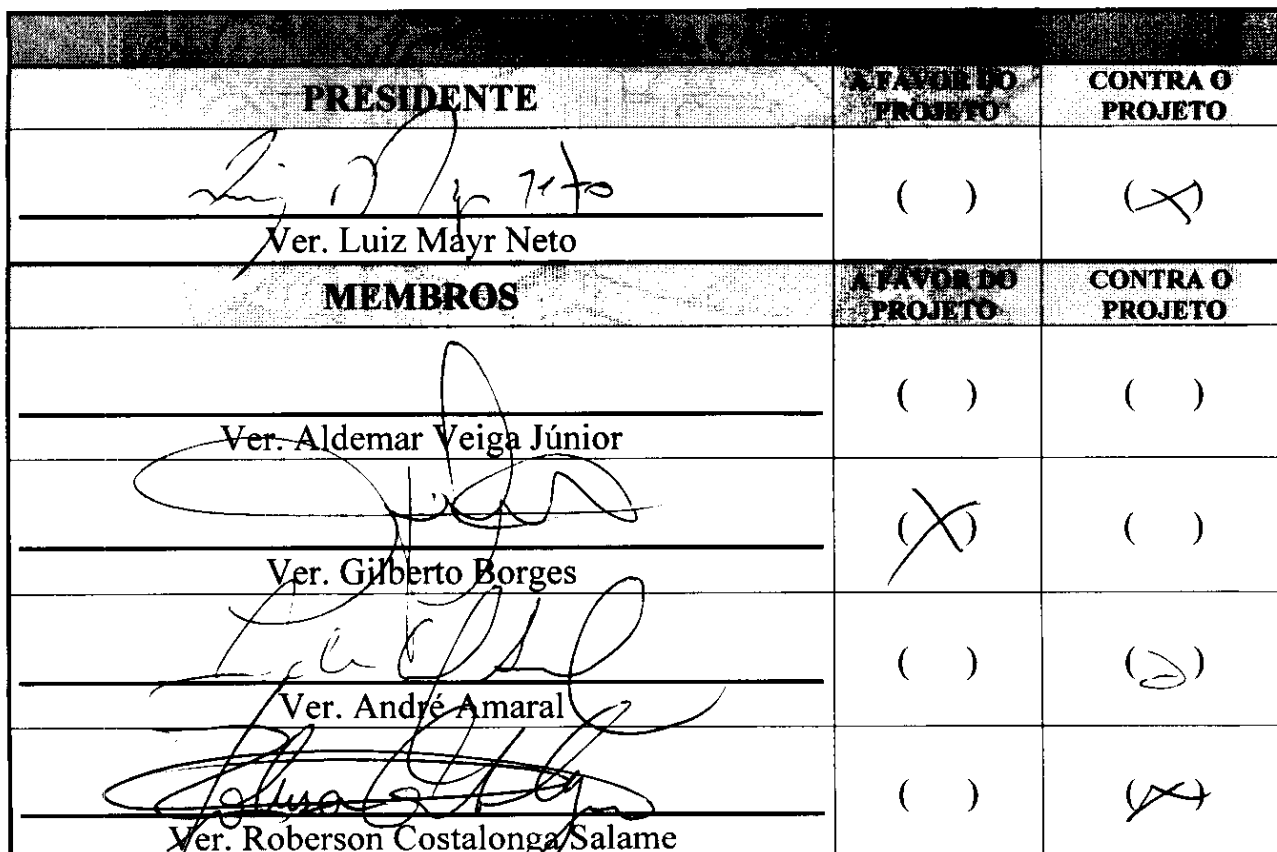 PRESIDENTE A FAVOR DO PROJETO CONTRA O PROJETO
( ) (X)
Ver. Luiz Mayr Neto
MEMBROS A FAVOR DO PROJETO CONTRA O PROJETO
( ) ( )
Ver. Aldemar Veiga Júnior
(X) ( )
Ver. Gilberto Borges
( ) ( )
Ver. André Amaral
( ) (X)
Ver. Roberson Costalonga Salame